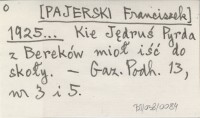 o
[PAJERSKI Franciszek]
1925... Kie Jędruś Pyrda
z Bereków mioł iść do
skoły. – Gaz. Podh. 13,
nr 3 i 5.